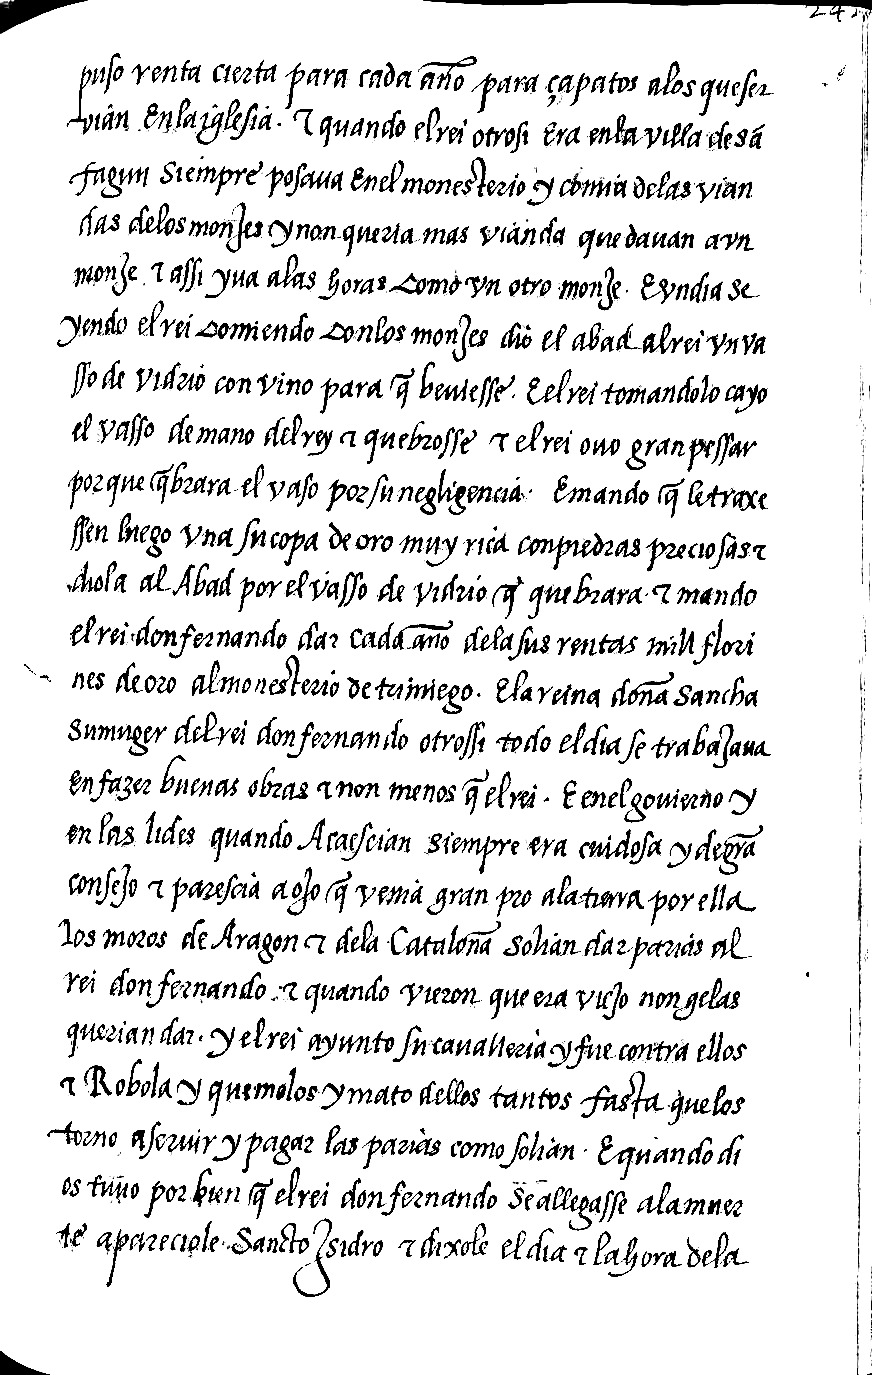 puso renta cierta para cada año para çapatos alos que ser
vian En la iglesia. τ quando el rei otrosi Era en la villa de sã
fagun Siempre posaua En el monesterio y comia de las vian
das de los monJes y non queria mas vianda que dauan a vn
monJe τ assi yua a las horas como vn otro monJe. E vn dia se
yendo el rei comiendo con los monJes dio el abad al rei vn va
sso de vidrio con vino para q̃ beuiesse. E el rei tomandolo cayo
el vasso de mano del rey τ quebrosse τ el rei ouo gran pessar
por que q̃brara el vaso por su negligencia. E mando q̃ le traxe
ssen luego vna su copa de oro muy rica con piedras preciosas τ
diola al Abad por el vasso de vidrio q̃ quebrara. τ mando
el rei don fernando dar cada año de la sus rentas mill flori
nes de oro al monesterio de triniego. E la reina doña Sancha
Su muger del rei don fernando otrossi todo el dia se trabaJaua
en fazer buenas obras τ non menos q̃ el rei. E en el gouierno y
en las lides quando Acaescian siempre era cuidosa y de grã
conseJo τ parescia a oJo q̃ venia gran pro a la tierra por ella
los moros de Aragon τ de la Cataloña solian dar parias al
rei don fernando. τ quando vieron que era vieJo non gelas
querian dar. y el rei ayunto su caualleria y fue contra ellos
τ Robola y quemolos y mato dellos tantos fasta que los
torno a seruir y pagar las parias como solian. E quando di
os tuuo por bien q̃ el rei don fernando Se allegasse a la muer
te apareciole Sancto Jsidro τ dixole el dia τ la hora de la